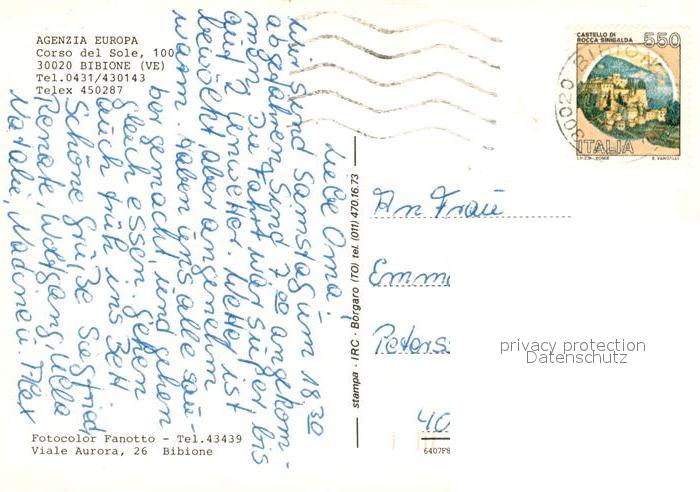 AGENZIA EUROPA
Corso del Sole, 100
30020 BIBIONE (VE)
Tel.0431/430143
Telex 450287
Liebe Oma,
wir sind Samstag um 18.30
abgefahren. Sind 7.00 angekom-
men. Die Fahrt war super bis
auf 2 Gewitter. Wetter ist
bewölkt, aber angenehm
warm. Haben uns alle sau-
ber gemacht, und gehen
gleich essen. Gehen
auch früh ins Bett.
Schöne Grüße Siegfried
Renate, Wolfgang, Ulla
Natalie, Nadine u. Max
Fotocolor Fanotto - Tel.43439
Viale Aurora, 26 Bibione
stampa - IRC - Borgaro (TO) tel. (011) 470.16.73
CASTELLO DI
ROCCA SINIBALDA
550
ITALIA
30020 BIBIONE
An Frau
Emm
Peters
40
privacy protection
Datenschutz